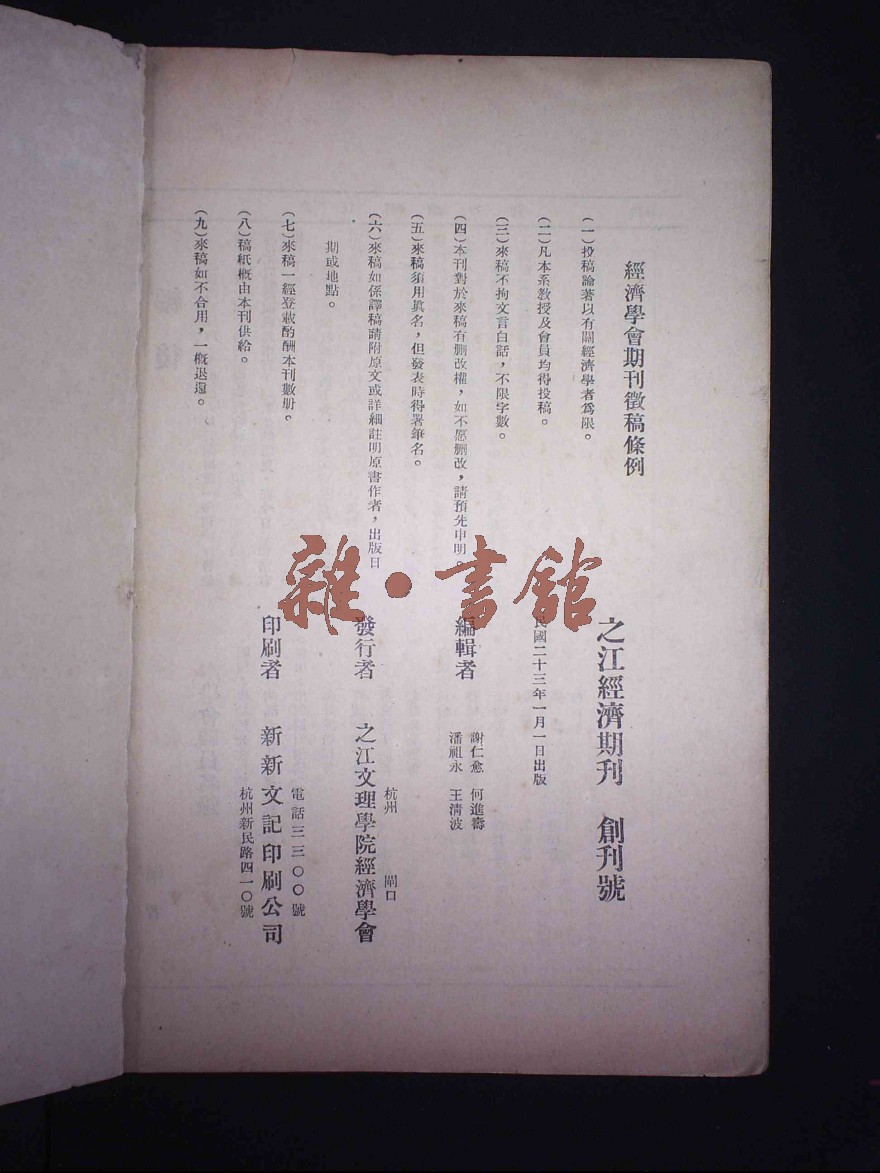 經濟學會期刊徵稿條例
(一)投稿論著以有關經濟學者爲限。
(二)凡本系教授及會員均得投稿。
(三)來稿不拘文言白話,不限字數。
(四)本刊對於來稿有删改權,如不愿删改,請預先申明
(五)來稿須用眞名,但發表時得署筆名。
(六)來稿如係譯稿請附原文或詳細註明原書作者,出版日
期或地點。
(七)來稿一經登載酌酬本刊數册。
(八)稿紙概由本刊供給。
(九)來稿如不合用,一概退還。
之江經濟期刊 創刊號
民國二十三年一月一日出版
編輯者
謝仁愈 何進壽
潘祖永 王清波
發行者
杭州 閘口
之江文理學院經濟學會
印刷者
電話三三〇〇號
新新文記印刷公司
杭州新民路四一〇號
雜·書館